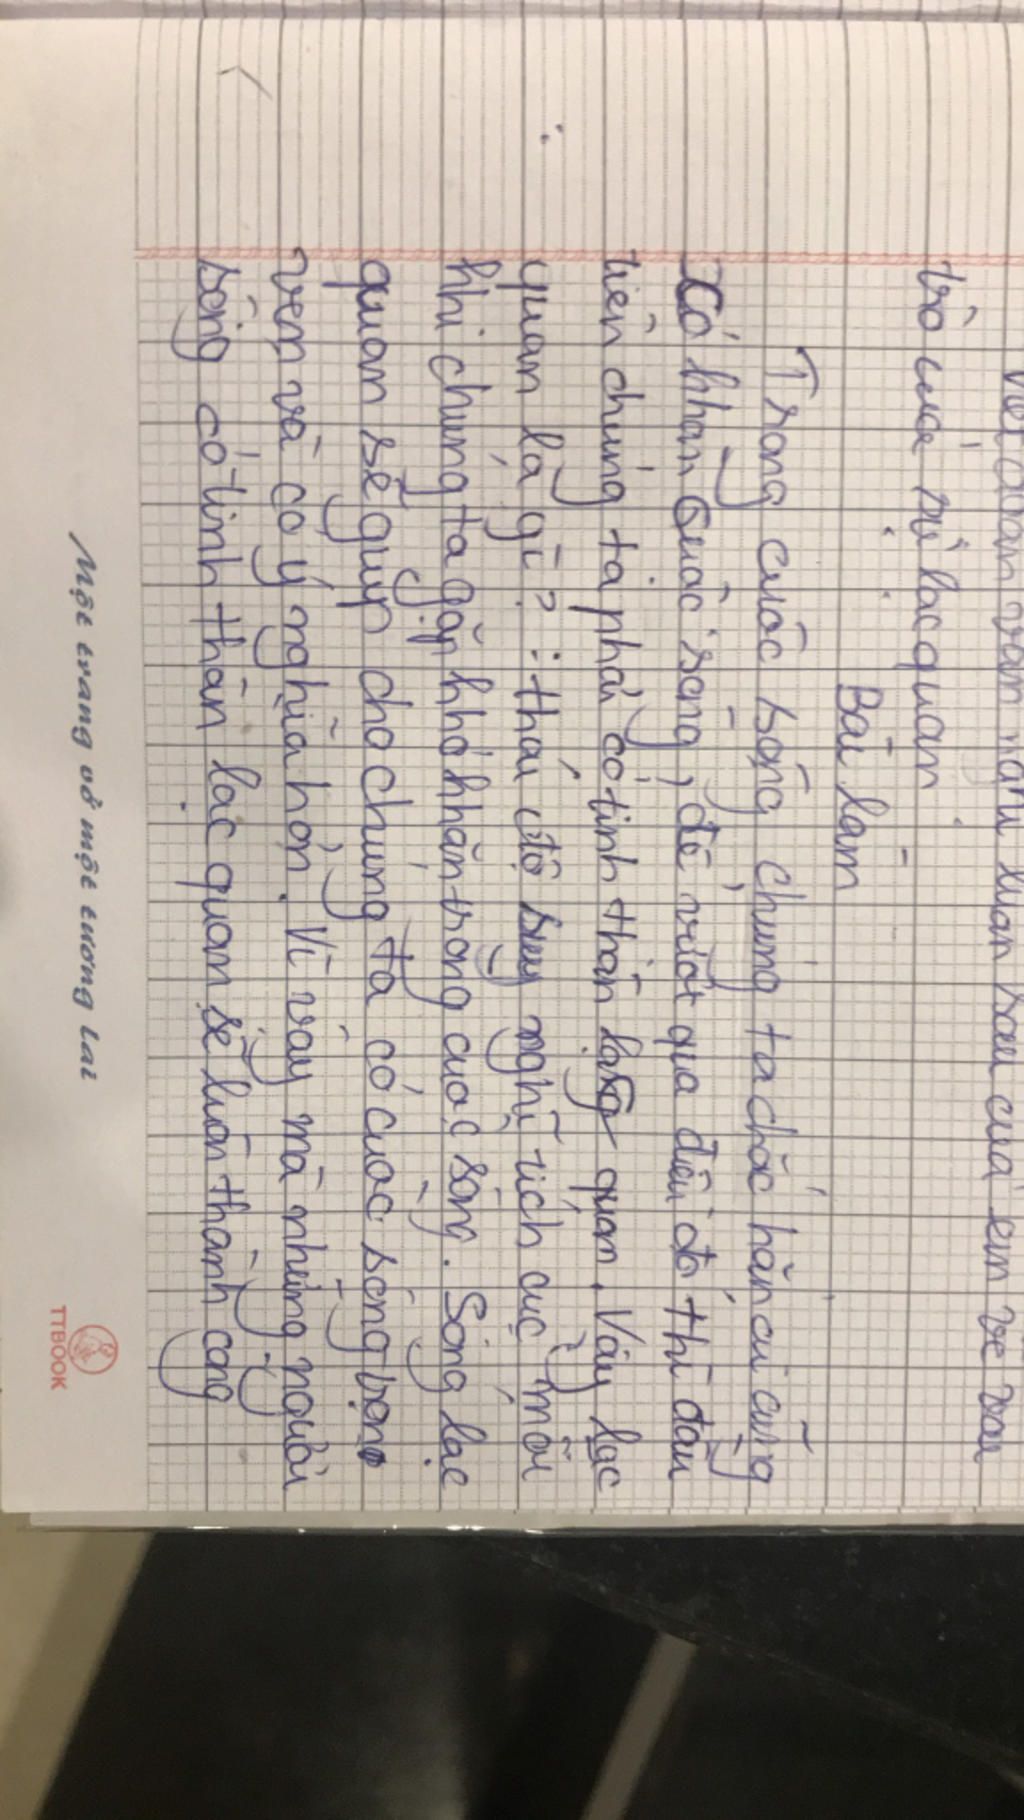 Viết đoạn văn nghị luận sau của em về vai
trò của sự lạc quan
Bài làm
Trong cuộc sống chúng ta chắc hẳn ai cũng
Có khan Quâc sống, để vượt qua điều đó thì đầu
tiên chúng ta phải có tinh thần lạng quan. Vây lạc
quan là gì? : thái độ suy nghĩ tích cực mỗi
khi chúng ta gặp khó khăn trong cuộc sống. Sống lạc
quan sẽ giúp cho chúng ta có cuộc sống trọn
vẹn và có ý nghĩa hơn. Vì vậy mà những người
sống có tinh thần lạc quan sẽ luôn thành công
Một trang vở một tương lai
TTBOOK